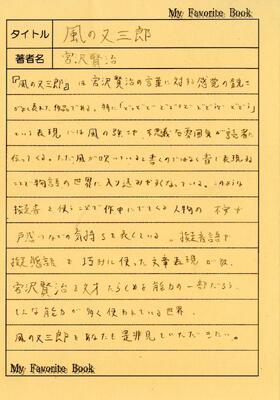 My Favorite Book
タイトル 風の又三郎
著者名 宮沢賢治
『風の又三郎』は宮沢賢治の言葉に対する感覚の鋭さ
がよく表れた作品である。特に「どっどど どどうど どどうど どどう」
という表現には風の強さや、不思議な雰囲気が読者に
伝ってくる。ただ風が吹いていると書くのではなく音で表現する
ことで物語の世界に入り込みやすくなっている。このような
擬音を使うことで作中にでてくる人物の不安や
戸惑いなどの気持ちを表している。擬音語や
擬態語を巧みに使った文章表現が
宮沢賢治を天才たらしめる能力の一部だろう。
そんな能力が多く使われている世界。
風の又三郎をあなたも是非見ていただきたい。
My Favorite Book